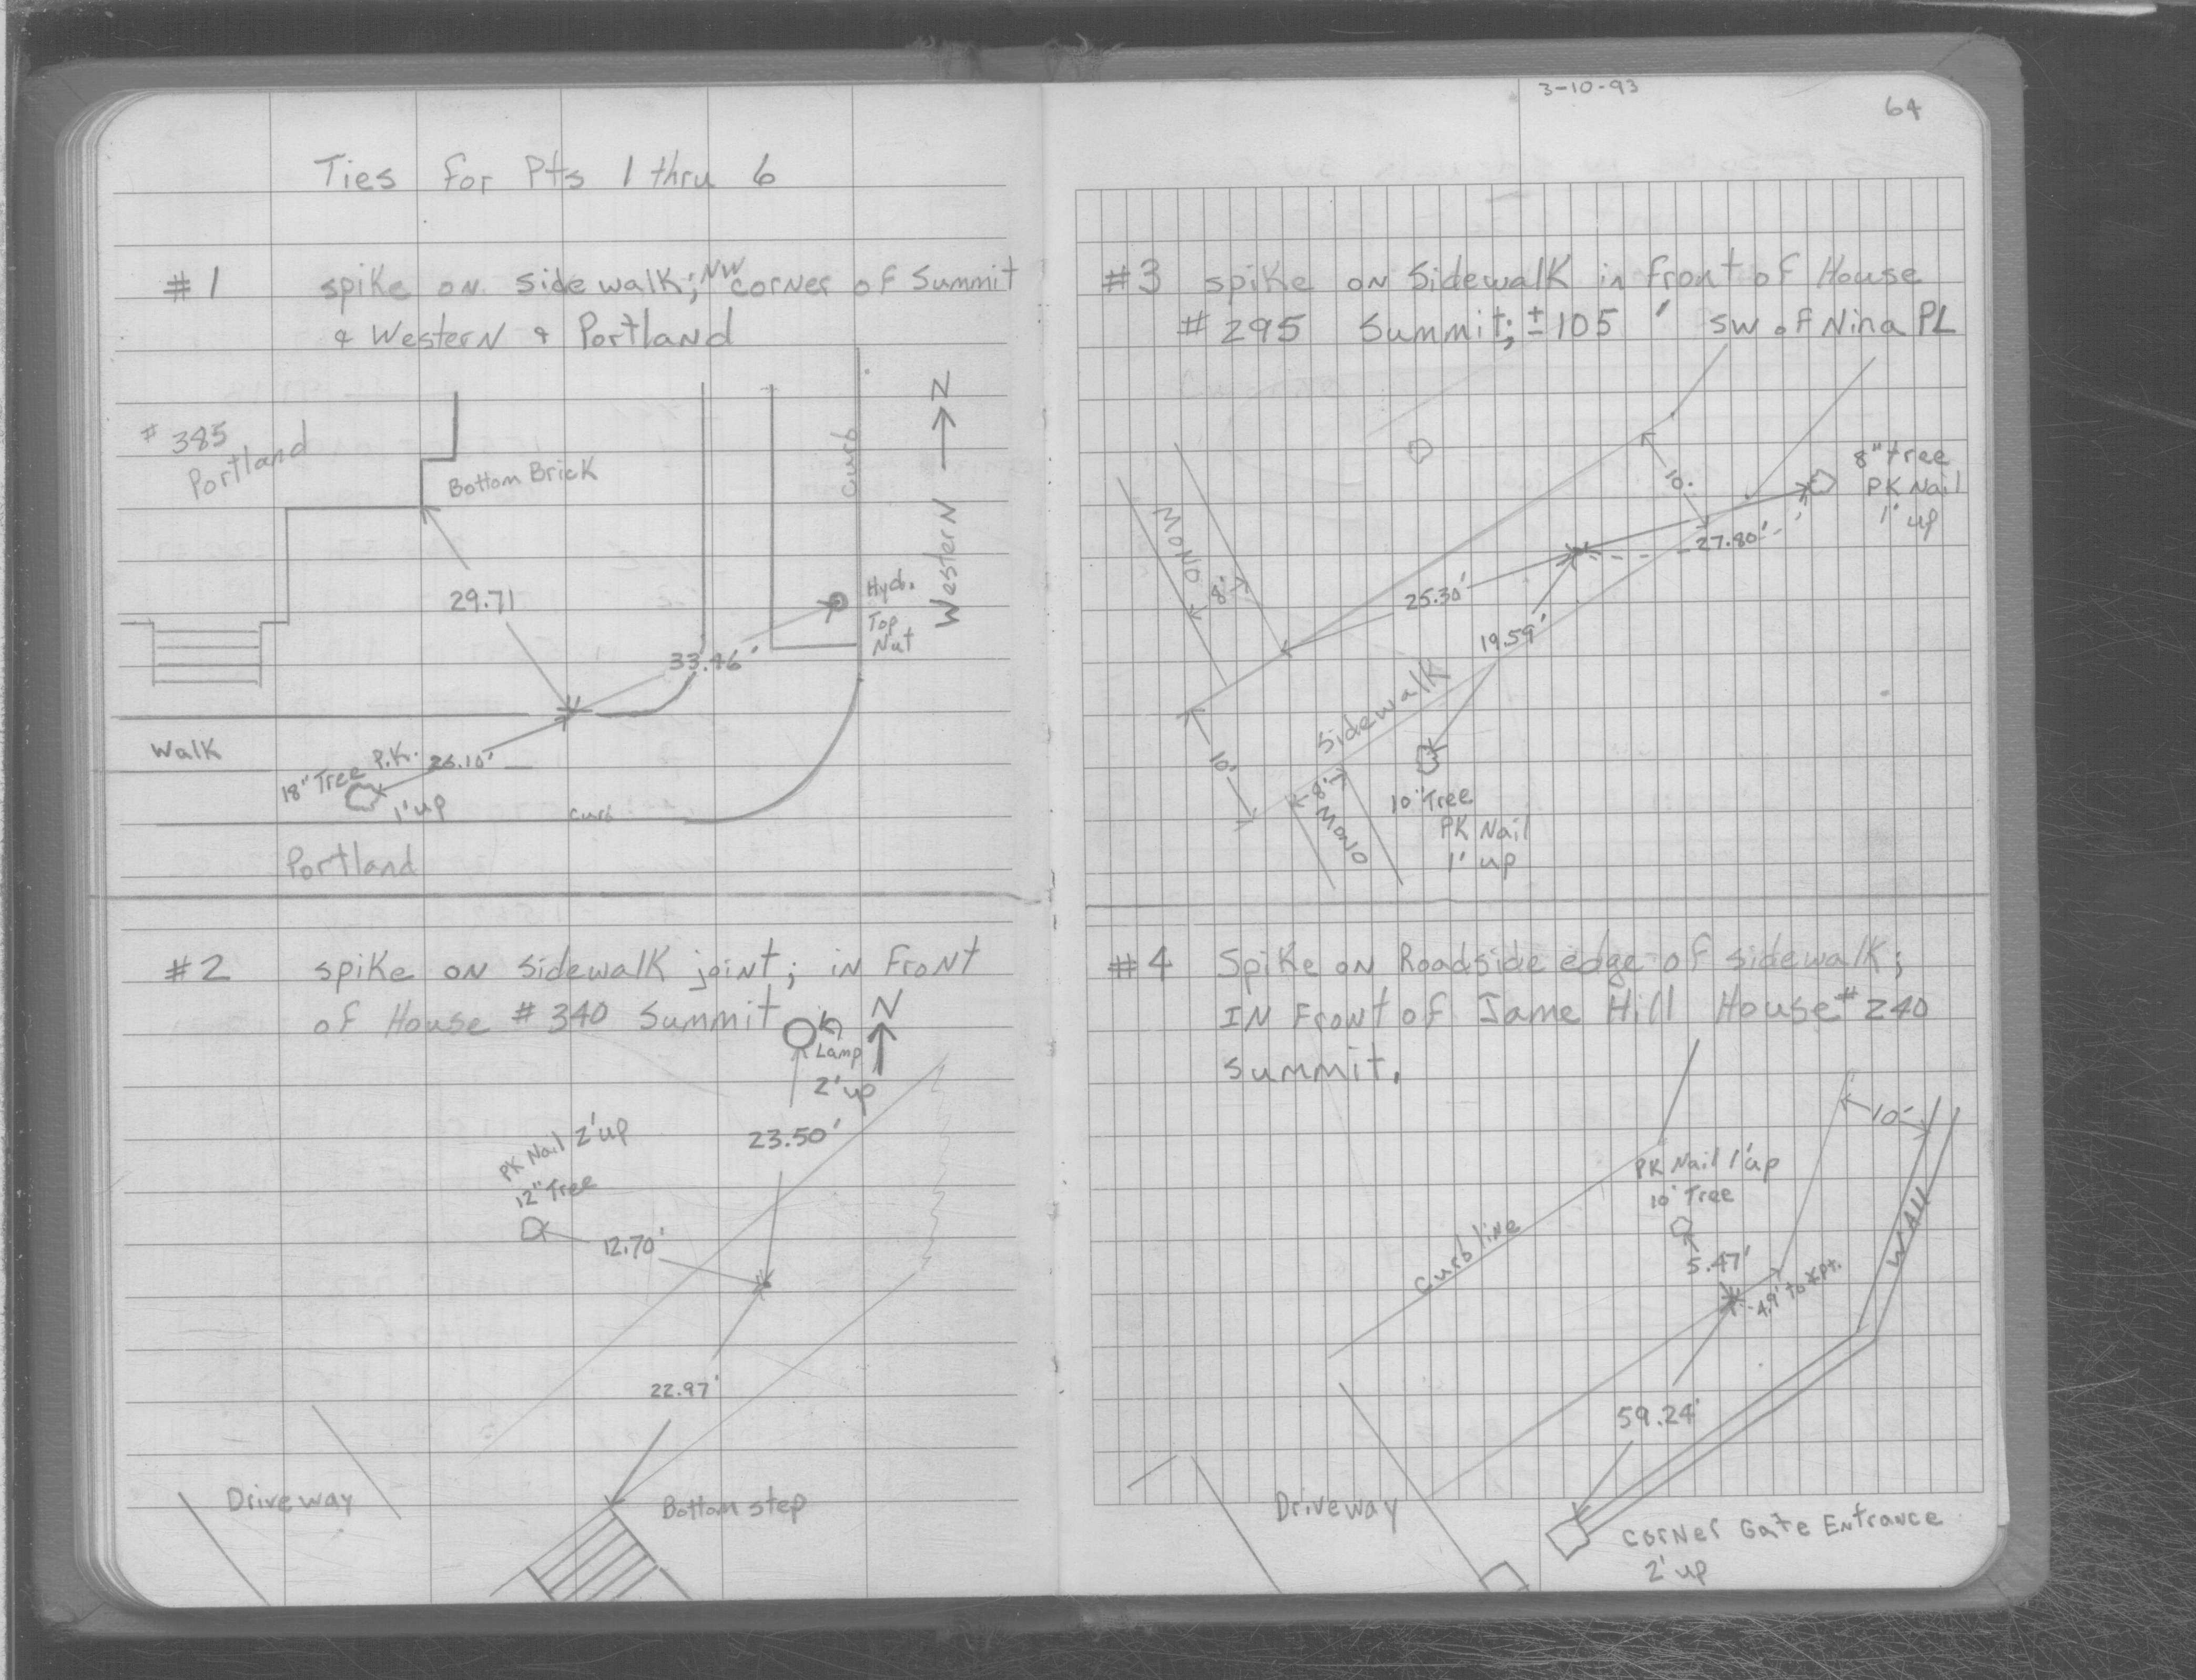 Ties for Pts 1 thru 6
#1 spike on sidewalk; NW corner of Summit
& Western & Portland
# 385
Portland
Bottom Brick
Curb
N
Western
29.71
Hyd.
Top
Nut
33.46'
Walk
P.K. 26.10'
18" Tree
1' up
curb
Portland
#2 spike on sidewalk joint; in front
of House # 340 Summit
N
Lamp
2' up
23.50'
PK Nail 2' up
12" Tree
12.70'
22.97'
Driveway
Bottom step
3-10-93
64
#3 spike on Sidewalk in front of House
# 295 Summit; ± 105 ' SW of Nina PL
8" tree
PK Nail
1' up
10.
27.80'
MONO
8'
25.30'
19.59'
Sidewalk
10'
8'
MONO
10" Tree
PK Nail
1' up
#4 Spike on Roadside edge of sidewalk;
IN Front of Jame Hill House # 240
summit.
10'
PK Nail 1' up
10' Tree
Curb line
5.47'
4.9' to xpt.
WAll
59.24'
Driveway
corner Gate Entrance
2' up